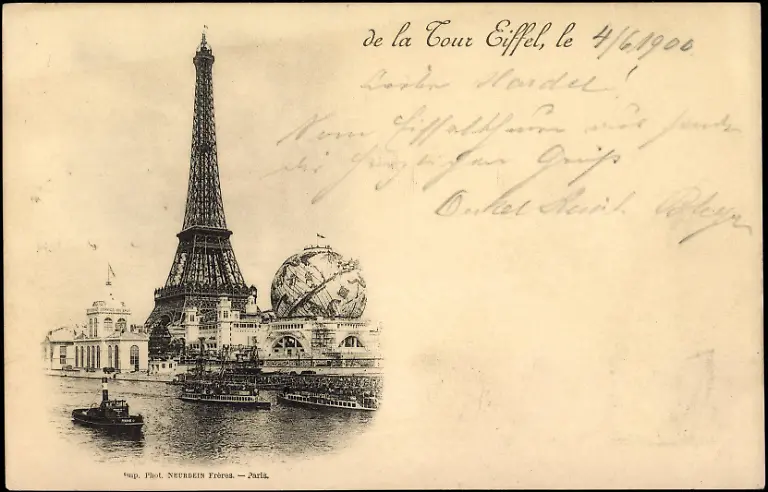 de la Tour Eiffel, le 4/6 1900
Liebe !
Vom Eiffelthurm aus sende
die herzlichen Gruß
Onkel
Imp. Phot. NEURDEIN Frères. — Paris.